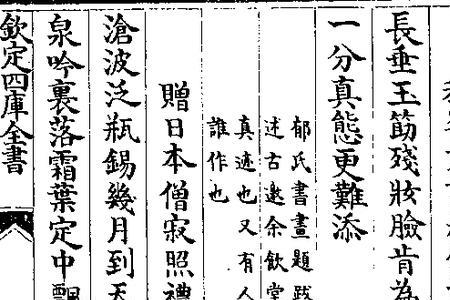 長垂玉筋殘妝臉肯為
一分真態更難添
郁氏書畫題跋
述古邀余飲堂
真迹也又有人
誰作也
贈日本僧寂照禮
滄波泛瓶錫幾月到天
泉吟裏落霜葉定中飄
欽定四庫全書